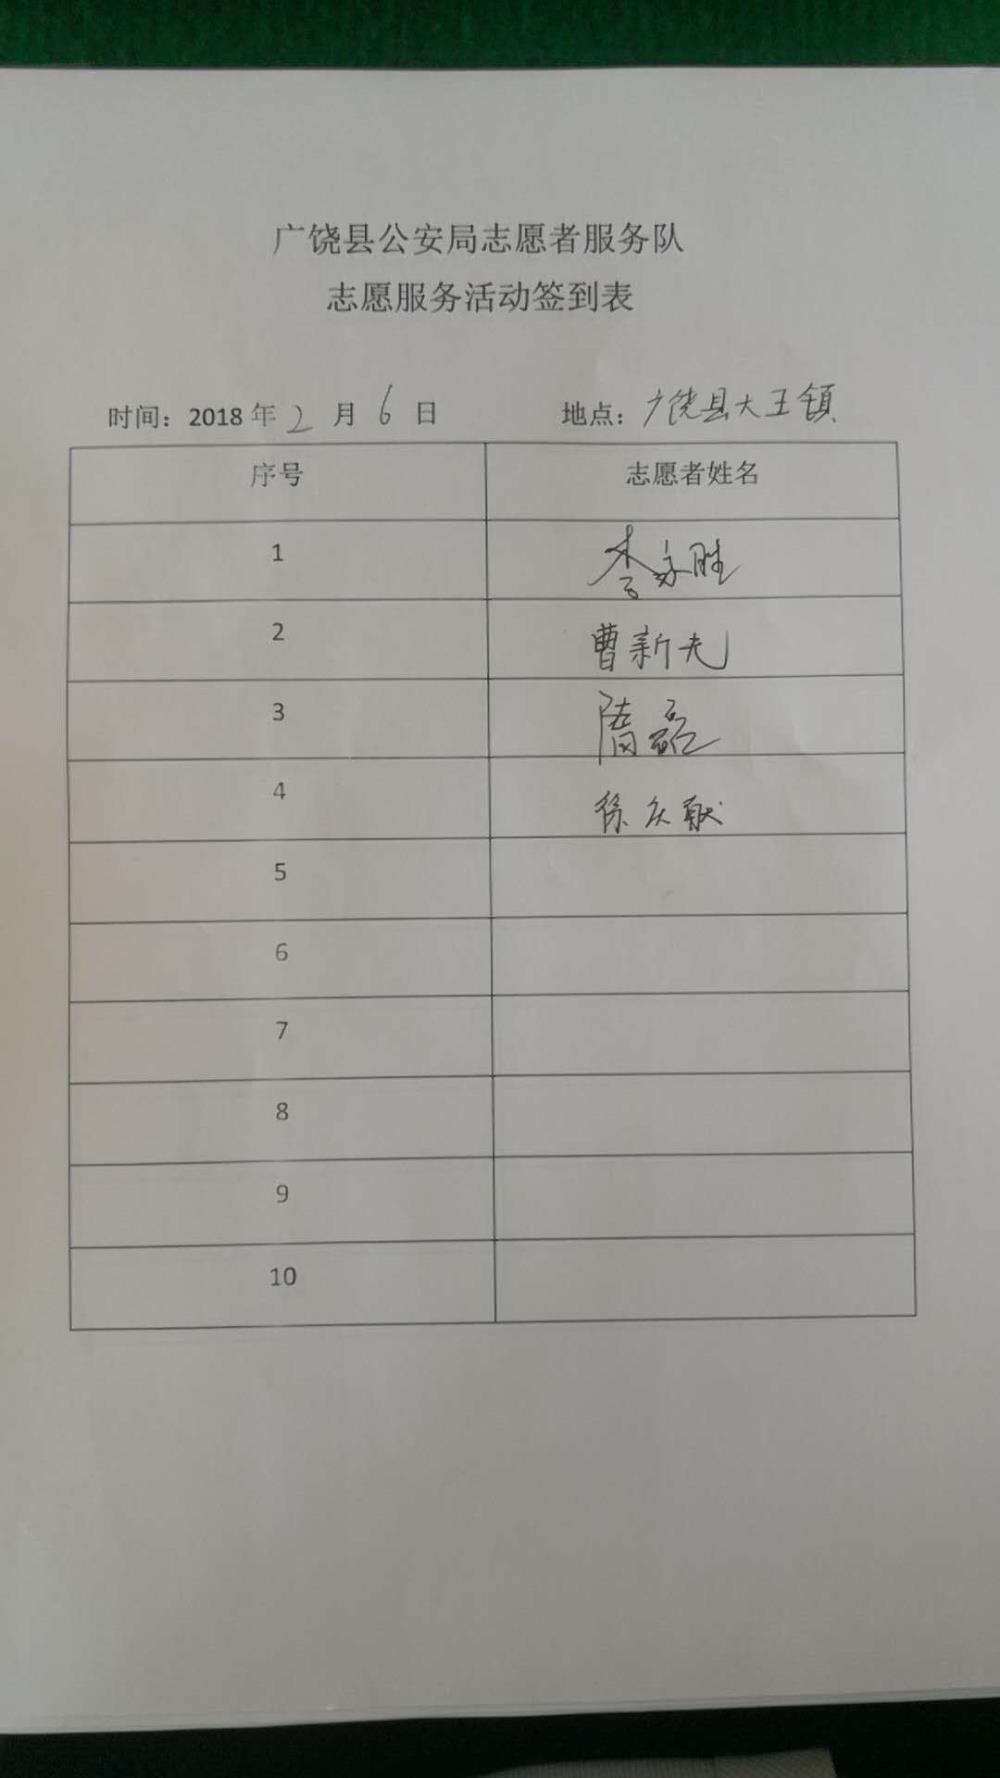 广饶县公安局志愿者服务队
志愿服务活动签到表
时间：2018年2月6日 地点：广饶县大王镇
序号 志愿者姓名
1 李永胜
2 曹新夫
3 隋磊
4 徐庆献
5
6
7
8
9
10